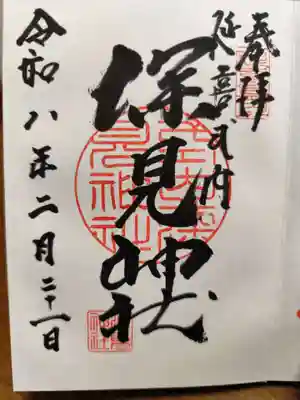 奉拝
延喜式内
深見神社
令和八年二月二十一日